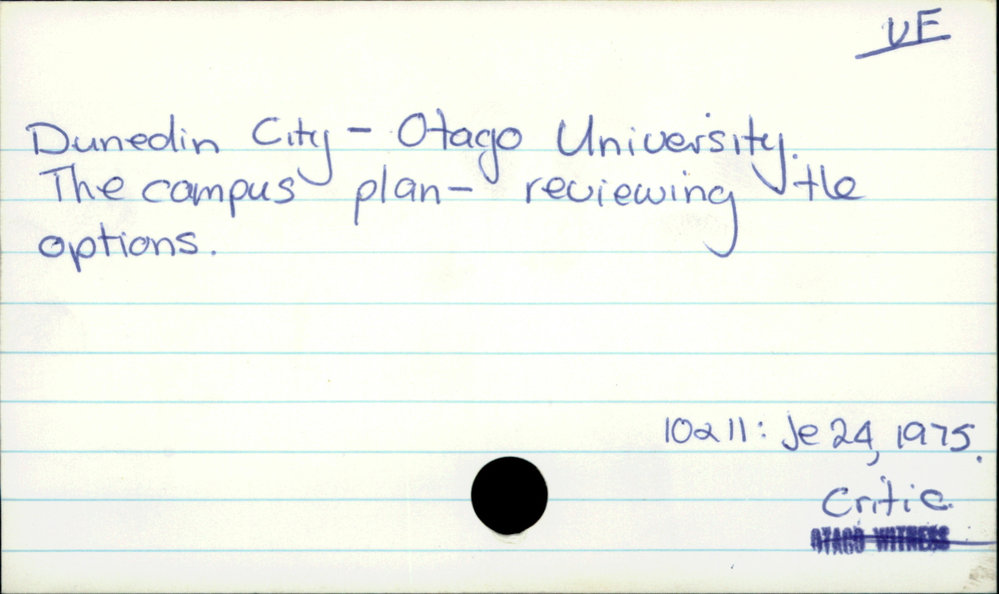 UF
Dunedin City - Otago University.
The campus plan - reviewing the
options.
10&11: Je 24, 1975.
Critic.
OTAGO WITNESS